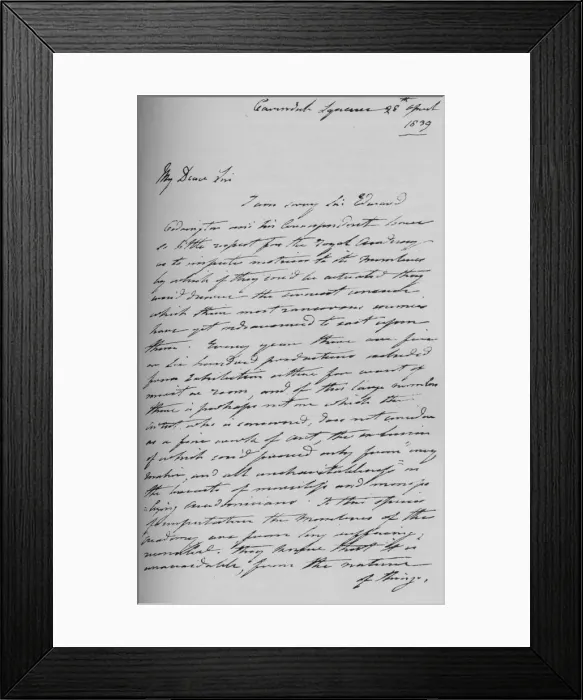 Cavendish Square 28th April
1839
My Dear Sir
I am sorry Sir Edward
and his Correspondent have
so little respect for the Royal Academy
as to impute motives to its Members
by which if they could be actuated they
would deserve the severest censure
which their most rancorous enemies
have yet endeavoured to cast upon
them. Every year there are five
or six hundred productions excluded
from Exhibition either for want of
merit or room, and of this large number
there is perhaps not one which the
artist who is concerned, does not consider
as a fine work of Art, the exclusion
of which could proceed only from "envy
malice, and all uncharitableness" in
the hearts of
Academicians. To this species
of imputation the Members of the
Academy are from long suffering,
They know that it is
unavoidable, from the nature
of things,